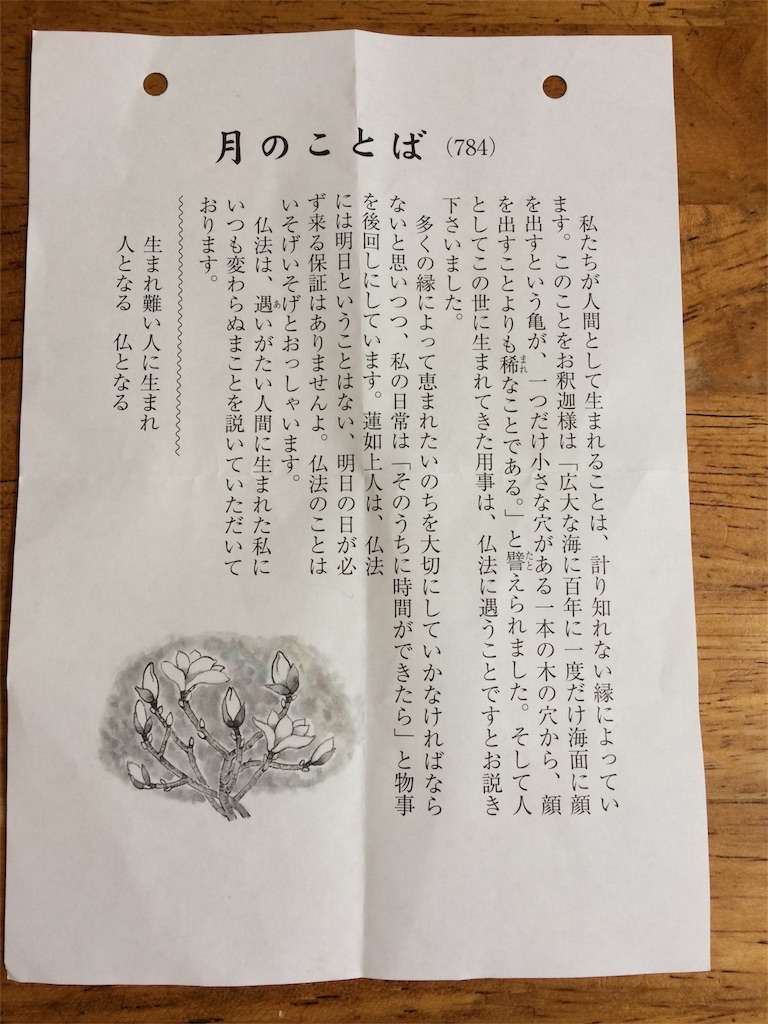 月のことば（784）
私たちが人間として生まれることは、計り知れない縁によってい
ます。このことをお釈迦様は「広大な海に百年に一度だけ海面に顔
を出すという亀が、一つだけ小さな穴がある一本の木の穴から、顔
を出すことよりも稀なことである。」と譬えられました。そして人
としてこの世に生まれてきた用事は、仏法に遇うことですとお説き
下さいました。
多くの縁によって恵まれたいのちを大切にしていかなければなら
ないと思いつつ、私の日常は「そのうちに時間ができたら」と物事
を後回しにしています。蓮如上人は、仏法
には明日ということはない、明日の日が必
ず来る保証はありませんよ。仏法のことは
いそげいそげとおっしゃいます。
仏法は、遇いがたい人間に生まれた私に
いつも変わらぬまことを説いていただいて
おります。
生まれ難い人に生まれ
人となる　仏となる